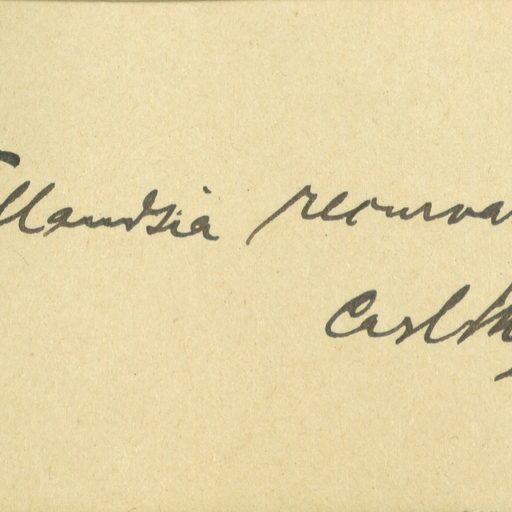 llandsia recurva
Carlsb